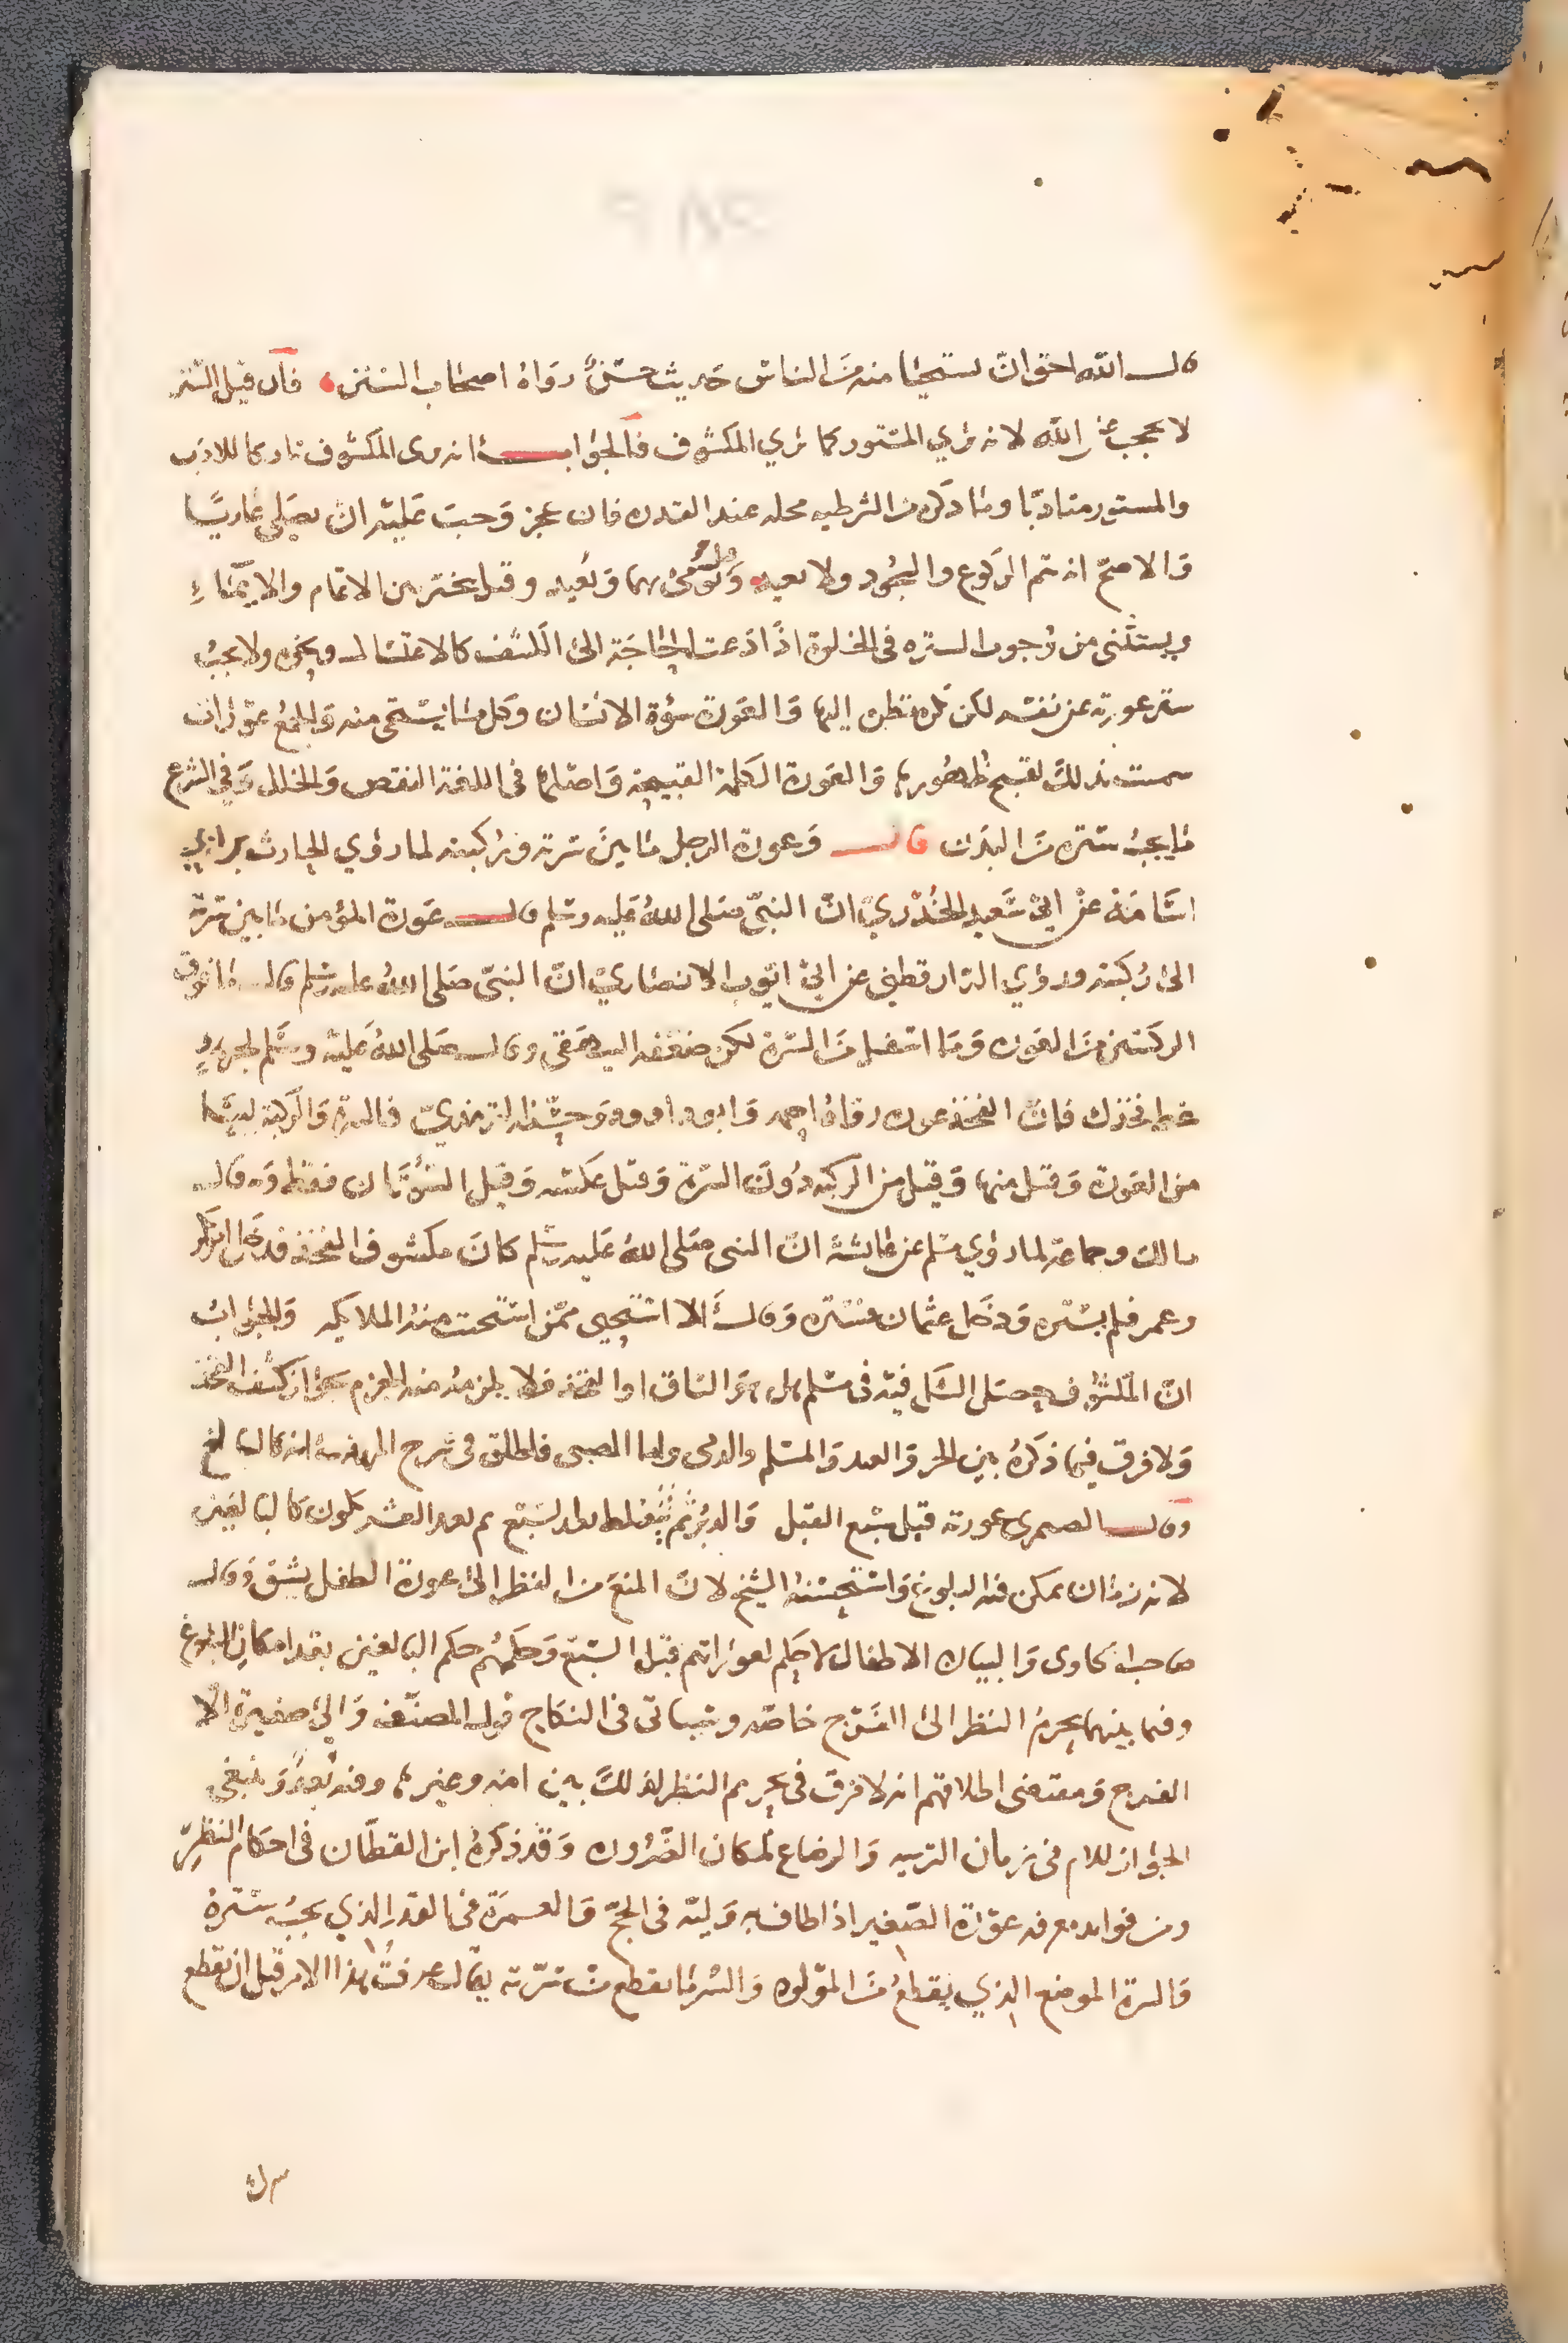 قال الله احق ان يستحيا منه من الناس حديث حسن رواه اصحاب السنن فان قيل الستر
لا يحجب عن الله لانه يري المستور كما يري المكشوف فالجواب انه يرى المكشوف تاركا للادب
والمستور متادبا وما ذكره من الشرطيه محله عند القدره فان عجز وجب عليه ان يصلي عاريا
والاصح انه يتم الركوع والسجود ولا يعيد وقيل يومئ بهما ويعيد وقيل يتخير بين الاتمام والايماء
ويستثنى من وجوب الستره في الخلوة اذا دعت الحاجة الى الكشف كالاغتسال ونحوه ولا يجب
ستر عورته عن نفسه لكن يكره نظره اليها والعورة سوءة الانسان وكل ما يستحى منه والجمع عورات
سميت بذلك لقبح ظهورها والعورة الكلمة القبيحة واصلها في اللغة النقص والخلل وفي الشرع
ما يجب ستره من البدن قال وعورة الرجل ما بين سرته وركبته لما روي الحارث بن ابي
اسامة عن ابي سعيد الخدري ان النبي صلى الله عليه وسلم قال عورة المؤمن ما بين سرته
الى ركبته وروي الدارقطني عن ابي ايوب الانصاري ان النبي صلى الله عليه وسلم قال ما فوق
الركبتين من العوره وما اسفل من السرة لكن ضعفه البيهقي وقال صلى الله عليه وسلم لجرهد
غط فخذك فان الفخذ عوره رواه احمد وابو داود وحسنه الترمذي فالسرة والركبة ليستا
من العورة وقيل منها وقيل من الركبه دون السرة وقيل عكسه وقيل السوءتان فقط وبه قال
مالك وجماعة لما روي مسلم عن عائشة ان النبي صلى الله عليه وسلم كان مكشوف الفخذ فدخل ابو بكر
وعمر فلم يستره ودخل عثمان فستره وقال الا استحيي ممن استحت منه الملايكه والجواب
ان المكشوف حصل الشك فيه في مسلم هل هو الساق او الفخذ فلا يلزم منه الجزم بجواز كشف الفخذ
ولا فرق فيما ذكره بين الحر والعبد والمسلم والذمى واما الصبى فاطلق في شرح المهذب انه كالبالغ
وقال الصيمرى عورته قبل سبع القبل والدبر ثم يتغلظ بعد السبع ثم بعد العشر يكون كالبالغين
لانه زمان يمكن فيه البلوغ واستحسنه الشيخ لان المنع من النظر الى عورة الطفل يشق وقال
صاحب الحاوى والبيان الاطفال لا حكم لعوراتهم قبل السبع وحكمهم حكم البالغين بعد امكان البلوغ
وفيما بينهما يحرم النظر الى الفرج خاصه وسياتى في النكاح قول المصنف والى صغيرة الا
الفرج ومقتضى اطلاقهم انه لا فرق في تحريم النظر لذلك بين امه وغيرها وفيه بعد وينبغي
الجواز للام في زمان التربيه والرضاع لمكان الضروره وقد ذكره ابن القطان في احكام النظر
ومن فوايد معرفة عورة الصغير اذا طاف به وليه في الحج والعمرة في القدر الذي يجب ستره
والسرة الموضع الذي يقطع من المولود والسر ما يقطع من سرته يقال عرفت هذا الامر قبل ان يقطع
سرك